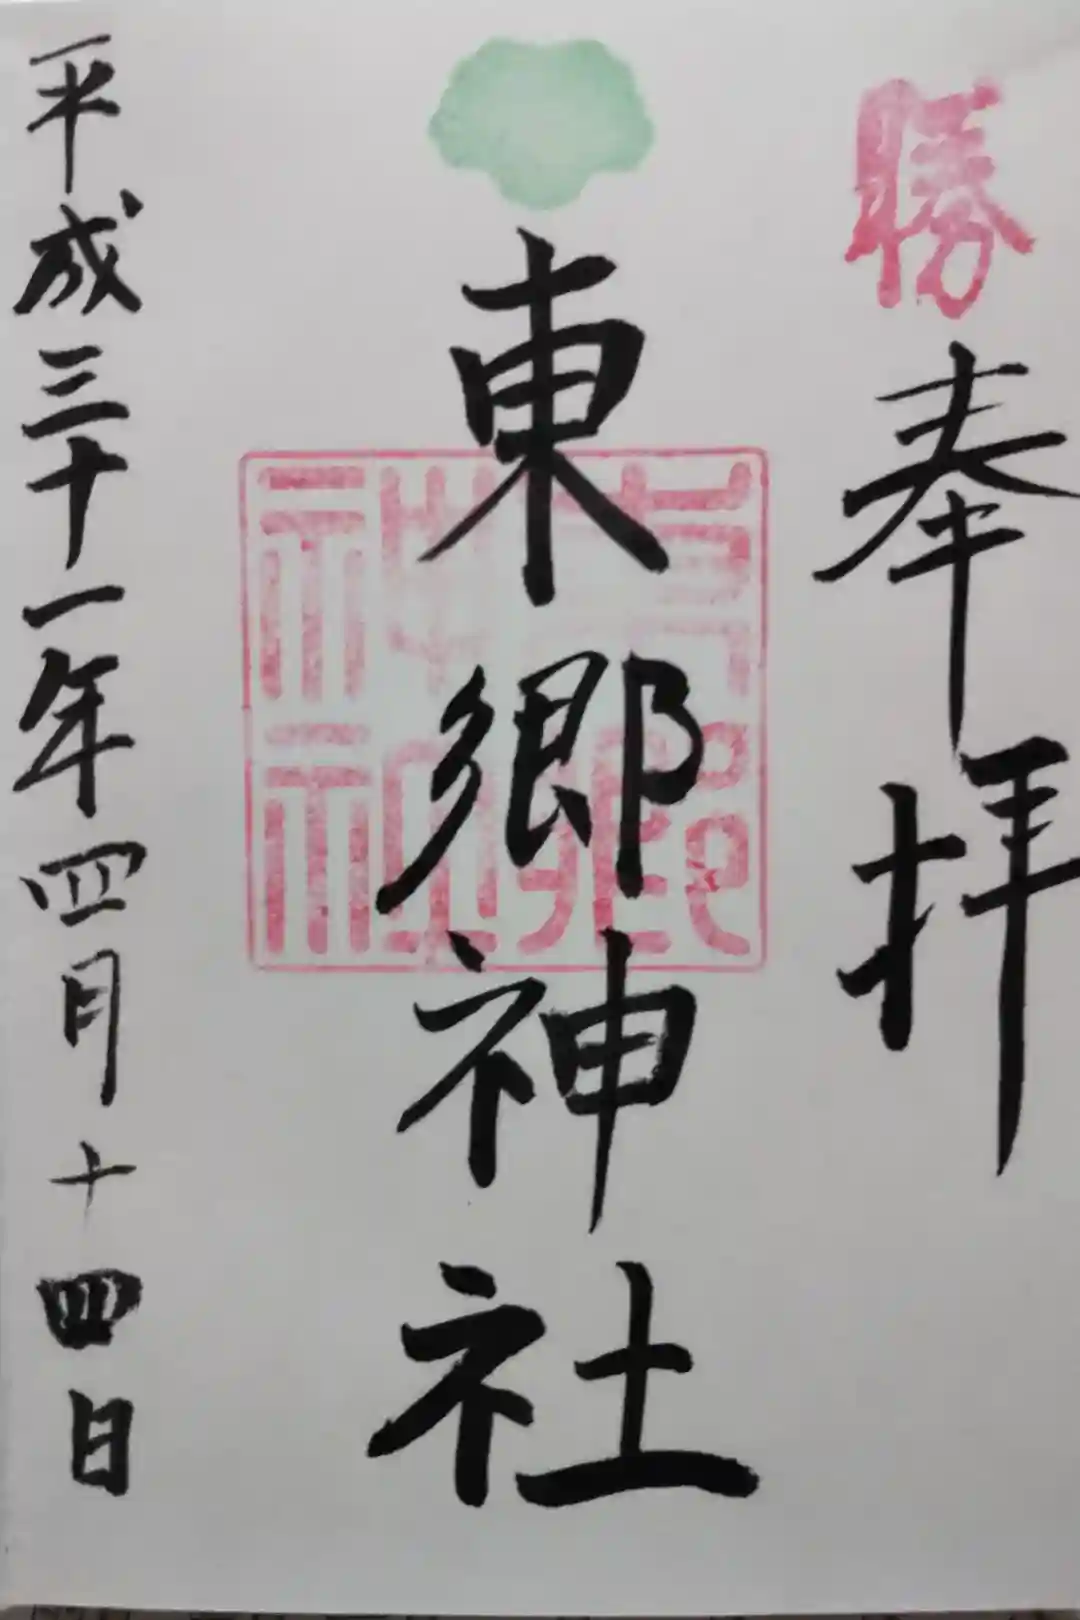 勝
奉拝
東郷神社
平成三十一年四月十四日